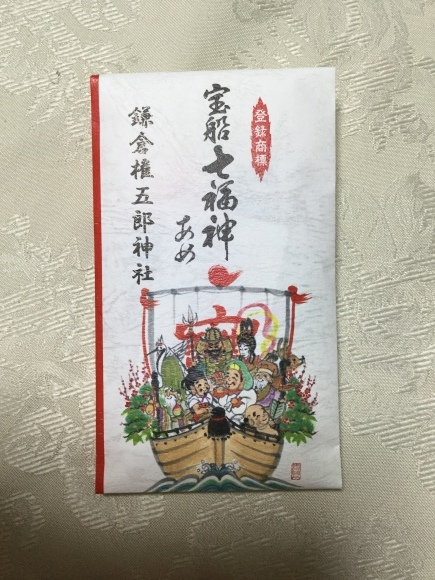 登録商標
宝船七福神
あめ
鎌倉権五郎神社